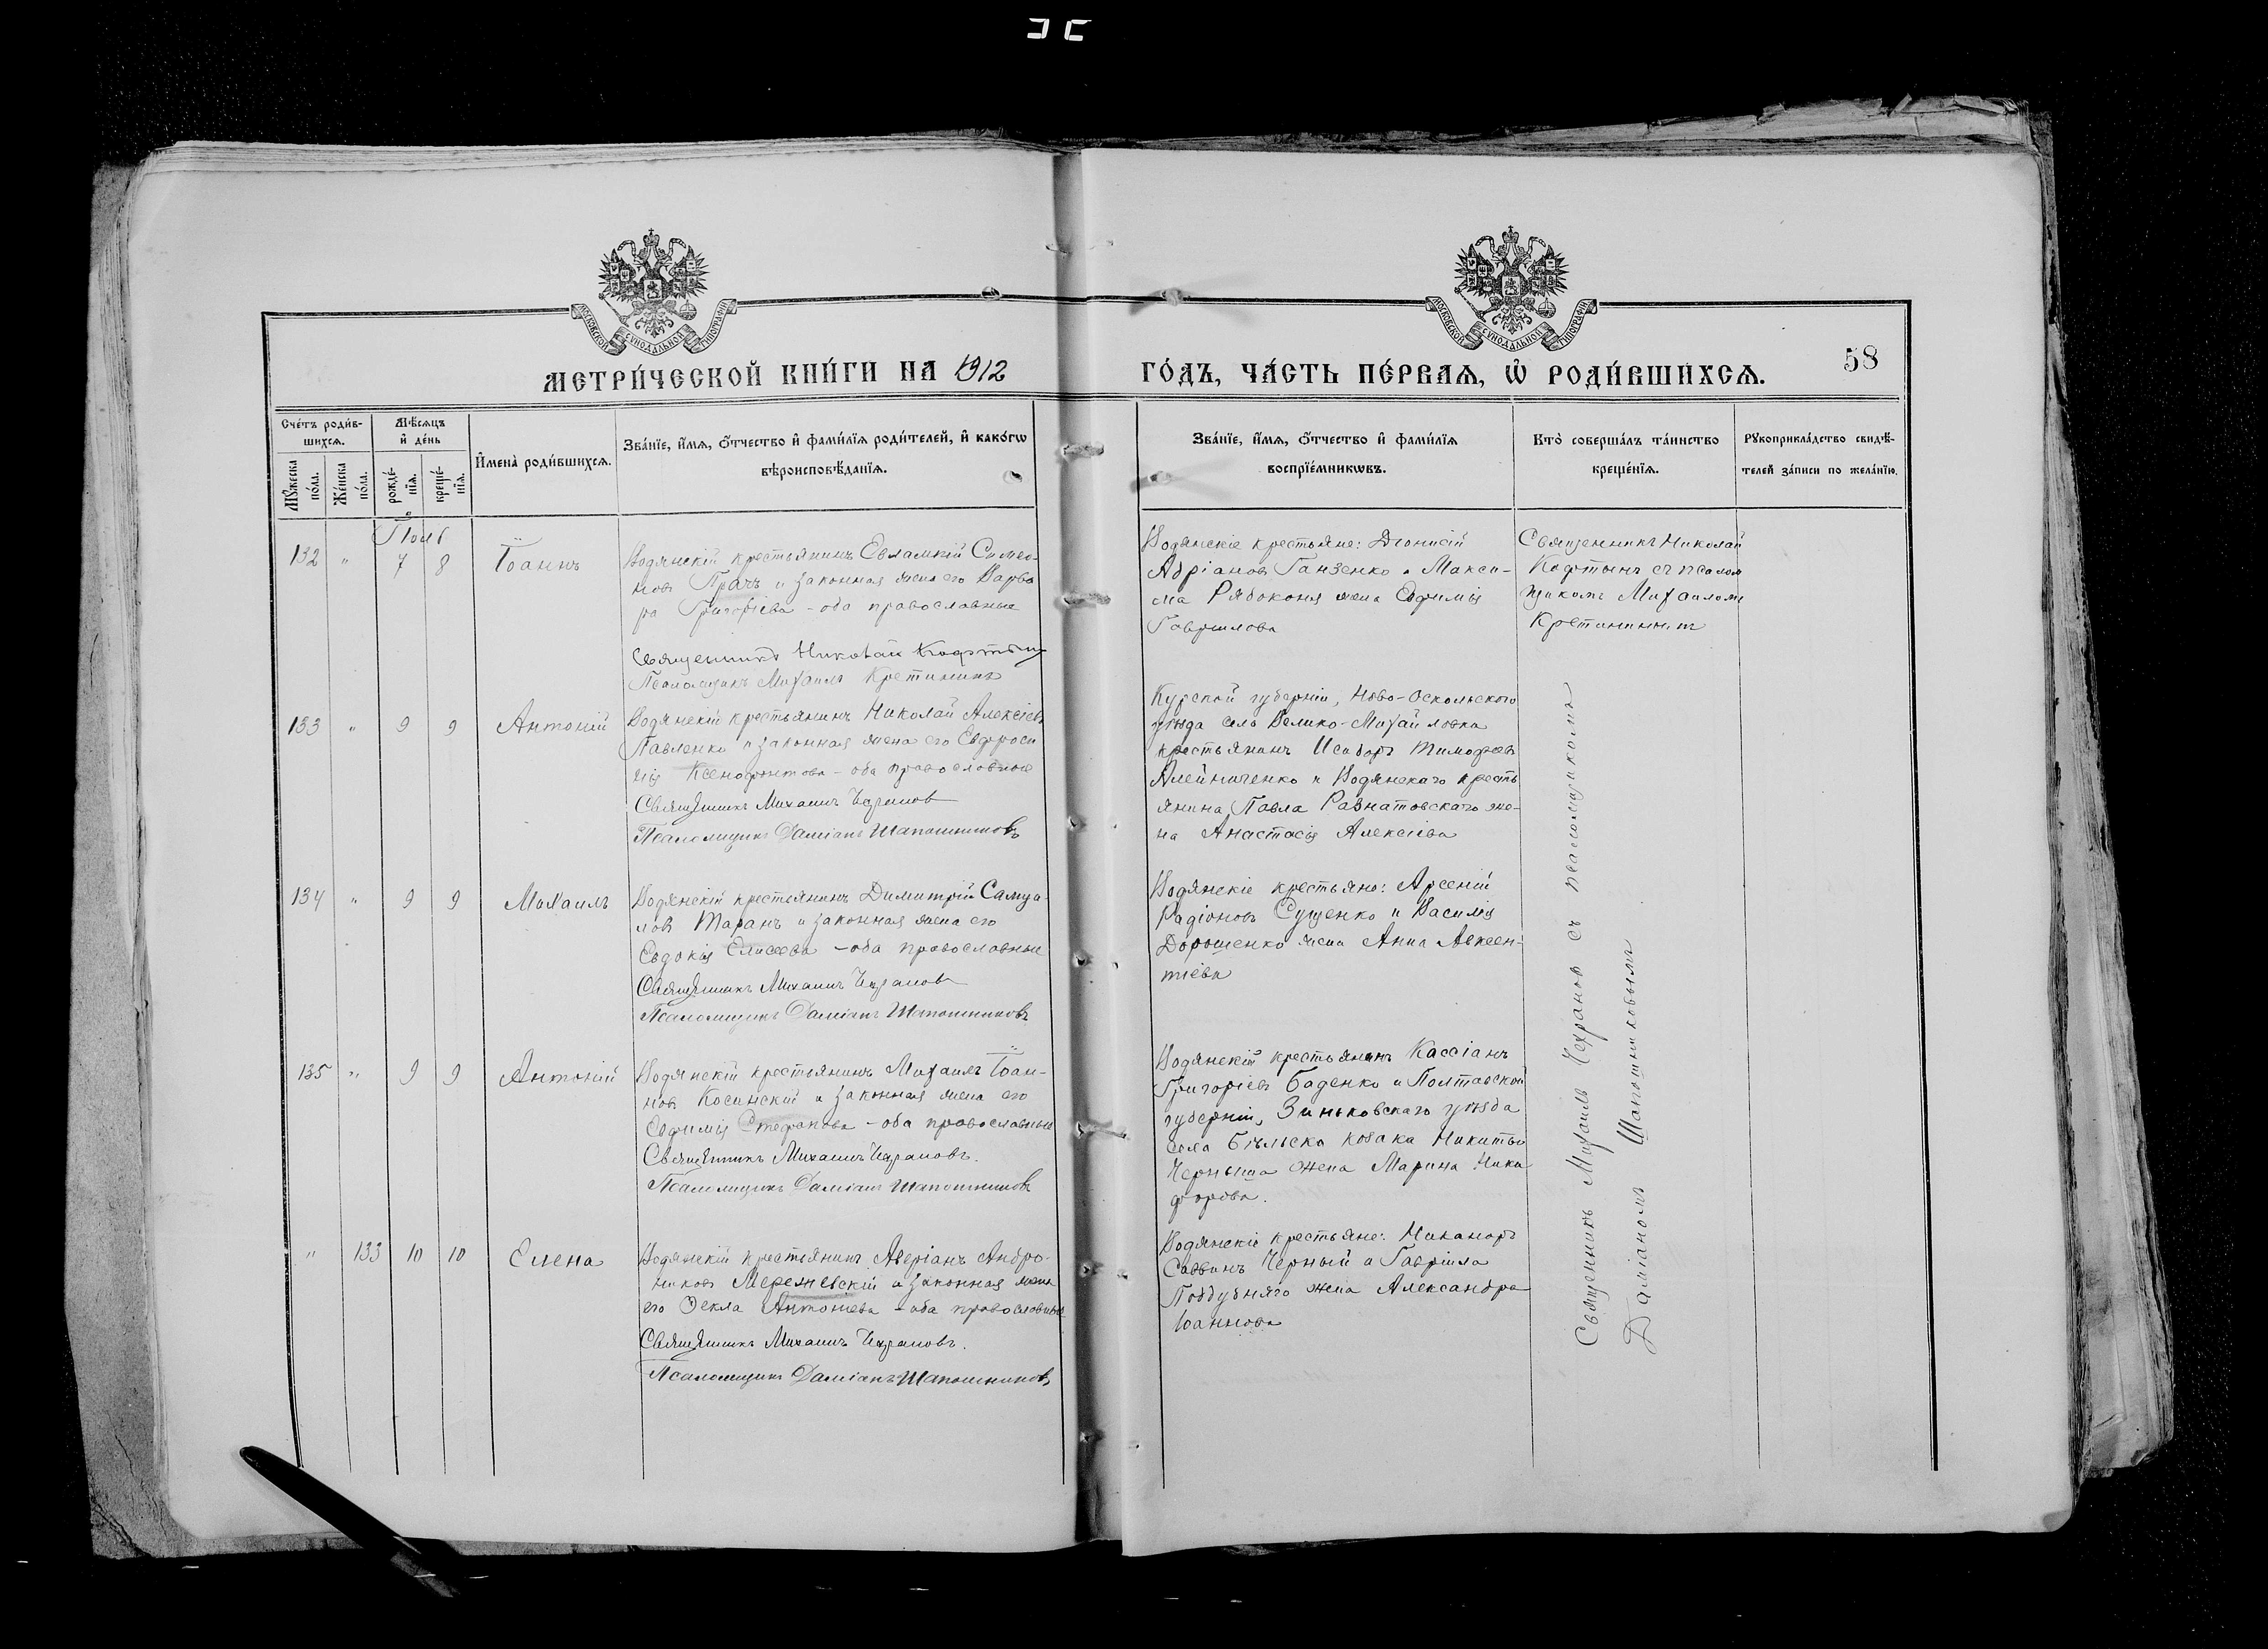 МОСКОВСКОЙ СѴНОДАЛЬНОЙ ТИПОГРАФІИ
МОСКОВСКОЙ СѴНОДАЛЬНОЙ ТИПОГРАФІИ
МЕТРИ́ЧЕСКОЙ КНИ́ГИ НА 1912
ГО́ДЪ, ЧА́СТЬ ПЕ́РВАЯ, Ѽ РОДИ́ВШИХСЯ.
58
Сче́тъ роди́в-
шихся.
Мѣсяцъ
и де́нь
Мꙋжеска
по́ла.
Же́нска
по́ла.
рожде́-
нїя.
креще́-
нїя.
Имена̀ роди́вшихся.
Зва́нїе, и́мя, о́тчество и фами́лїя роди́телей, и како́гѡ
вѣроисповѣ́данїя.
Зва́нїе, и́мя, о́тчество и фами́лїя
воспрїе́мникѡвъ.
Кто̀ соверша́лъ та́инство
креще́нїя.
Рꙋкоприкла́дство свидѣ́-
телей за́писи по жела́нїю.
132 " 7 8 Іоаннъ
Водянскій крестьянинъ Евлампій Симео-
новъ Прачъ и законная жена его Варва
ра Григоріева - оба православные
Священникъ Николай Кофтынъ
Псаломщикъ Михаилъ Кретининъ
Водянскіе крестьяне: Діонисій
Адріановъ Ганзенко и Макси-
ма Рябоконя жена Евфимія
Гавриилова
Священникъ Николай
Кофтынъ съ псалом
щикомъ Михаиломъ
Кретининымъ
133 " 9 9 Антоній
Водянскій крестьянинъ Николай Алексіевъ
Павленко и законная жена его Евфроси
нія Ксенофонтова - оба православные
Священникъ Михаилъ Чехрановъ
Псаломщикъ Даміанъ Шапошниковъ
Курской губерніи, Ново-Оскольского
уѣзда села Велико-Михайловка
крестьянинъ Исидоръ Тимофеевъ
Алейниченко и Водянскаго кресть
янина Павла Разнатовскаго же-
на Анастасія Алексіева
134 " 9 9 Михаилъ
Водянскій крестьянинъ Димитрій Самуи-
ловъ Таранъ и законная жена его
Евдокія Елисеева - оба православные
Священникъ Михаилъ Чехрановъ
Псаломщикъ Даміанъ Шапошниковъ
Водянскіе крестьяне: Арсеній
Радіоновъ Сущенко и Василія
Дорошенко жена Анна Авксен-
тіева
135 " 9 9 Антоній
Водянскій крестьянинъ Михаилъ Іоан-
новъ Косинскій и законная жена его
Евфимія Стефанова - оба православные
Священникъ Михаилъ Чехрановъ.
Псаломщикъ Даміанъ Шапошниковъ
Водянскій крестьянинъ Кассіанъ
Григоріевъ Баденко и Полтавской
губерніи, Зиньковскаго уѣзда
села Бѣльска козака Никиты
Черныша жена Марина Ники
форова.
" 133 10 10 Елена
Водянскій крестьянинъ Аверіанъ Андро-
никовъ Мережевскій и законная жена
его Ѳекла Антоніева - оба православные
Священникъ Михаилъ Чехрановъ.
Псаломщикъ Даміанъ Шапошниковъ
Водянскіе крестьяне: Никаноръ
Саввинъ Черный и Гавріила
Поддубняго жена Александра
Іоаннова
Священникъ Михаилъ Чехрановъ съ псаломщикомъ
Даміаномъ Шапошниковымъ